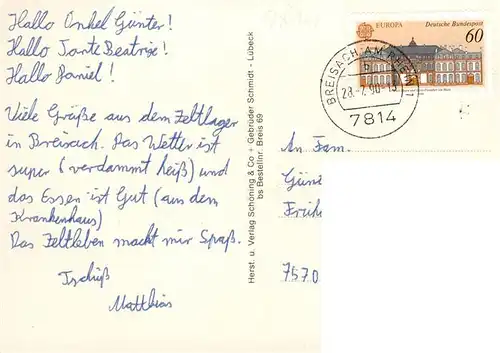 Hallo Onkel Günter!
Hallo Tante Beatrixe!
Hallo Daniel!
Viele Grüße aus dem Zeltlager
in Breisach. Das Wetter ist
super (verdammt heiß) und
das Essen ist Gut (aus dem
Krankenhaus)
Das Zeltleben macht mir Spaß.
Tschüß
Matthias
Herst. u. Verlag Schöning & Co + Gebrüder Schmidt - Lübeck
bs Bestellnr. Breis 69
EUROPA Deutsche Bundespost
60
BREISACH AM RHEIN 1
b
28.-7.90-13
7814
An Fam.
Günt
Früh
7570